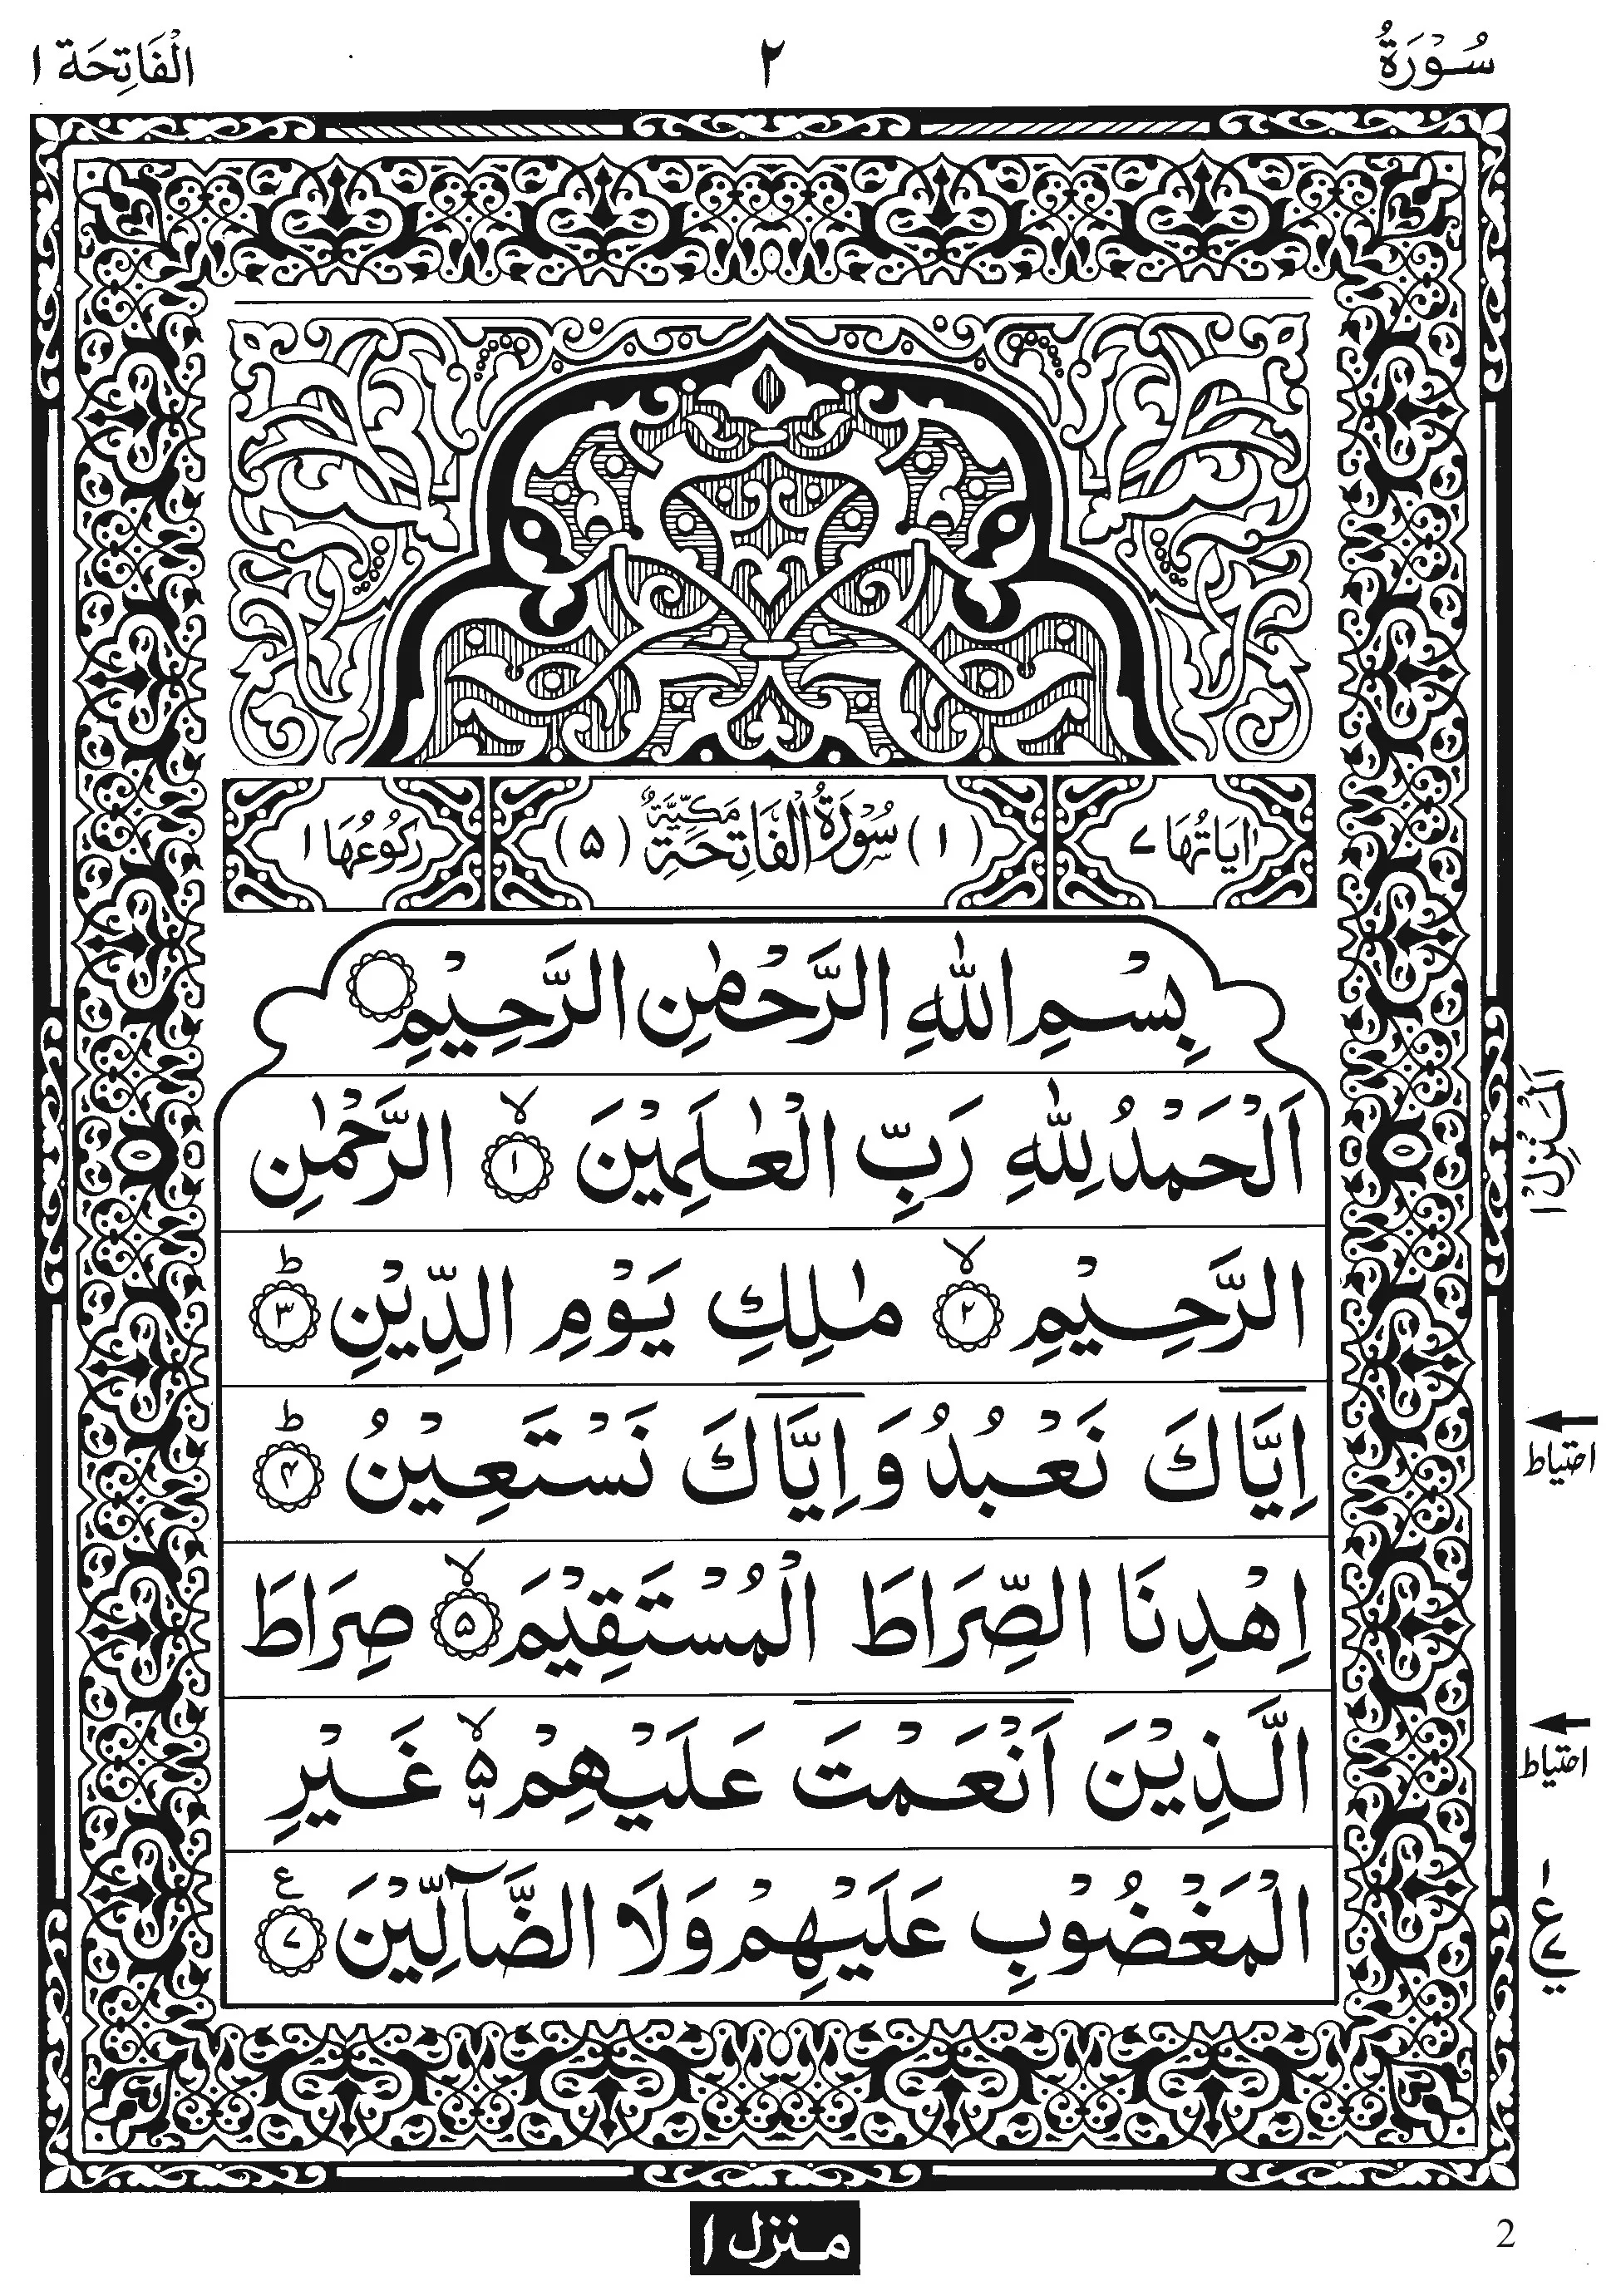 سُوْرَةُ ٢ الْفَاتِحَة ١
اٰيَاتُهَا ٧ (١) سُوْرَةُ الْفَاتِحَةِ مَكِّيَّةٌ (٥) رُكُوْعُهَا ١
بِسْمِ اللّٰهِ الرَّحْمٰنِ الرَّحِيْمِ
اَلْحَمْدُ لِلّٰهِ رَبِّ الْعٰلَمِيْنَ ۙ‏ ١ الرَّحْمٰنِ
الرَّحِيْمِ ۙ‏ ٢ مٰلِكِ يَوْمِ الدِّيْنِ ؕ‏ ٣
اِيَّاكَ نَعْبُدُ وَ اِيَّاكَ نَسْتَعِيْنُ ؕ‏ ۴
اِهْدِنَا الصِّرَاطَ الْمُسْتَقِيْمَ ۙ‏ ۵ صِرَاطَ
الَّذِيْنَ اَنْعَمْتَ عَلَيْهِمْ ۙ۬ ۵ ٦ غَيْرِ
الْمَغْضُوْبِ عَلَيْهِمْ وَلَا الضَّآلِّيْنَ ع ٧
اَلْمَنْزِلُ ١
احتیاط
احتیاط
منزل ١
2